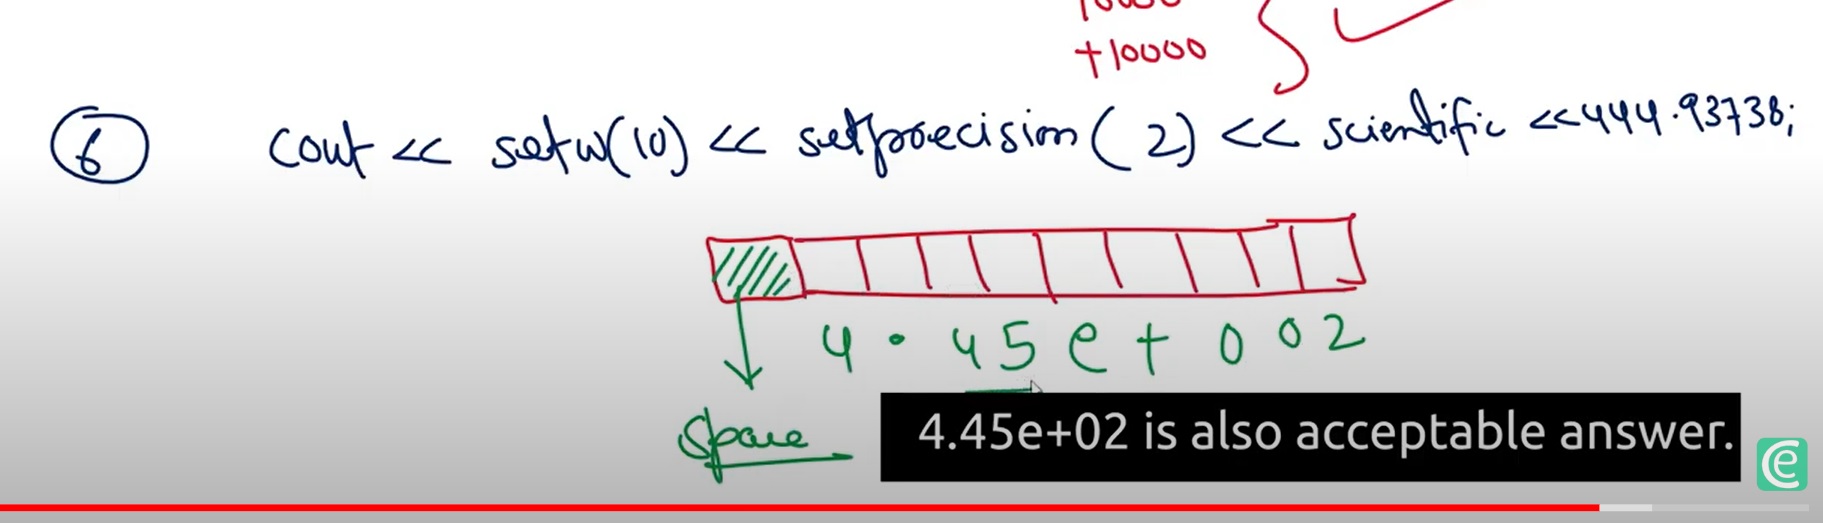 +10000
6 cout << setw(10) << setprecision(2) << scientific <<444.93738;
4.45e+002
space
4.45e+02 is also acceptable answer.